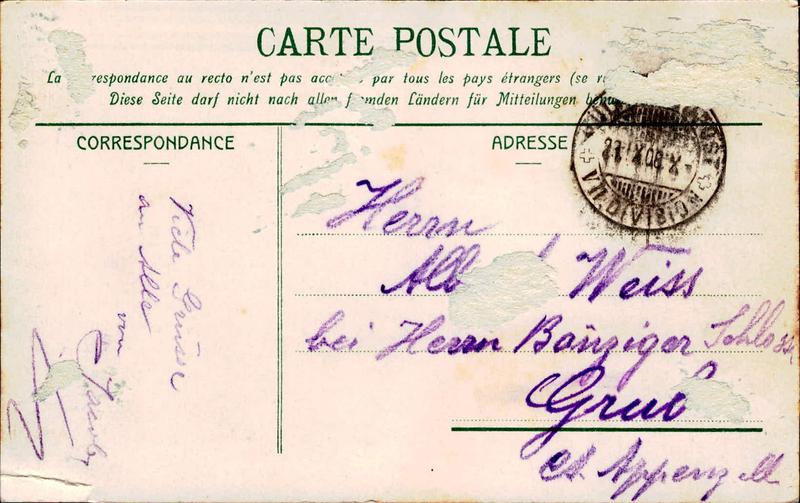 CARTE POSTALE
La respondance au recto n'est pas acc par tous les pays étrangers (se r
Diese Seite darf nicht nach allen f mden Ländern für Mitteilungen benu
CORRESPONDANCE
Viele Grüsse
an Alle
von
ADRESSE
Herrn
Alb Weiss
bei Herrn Bänziger Schloss
Grub
ct. Appenzell